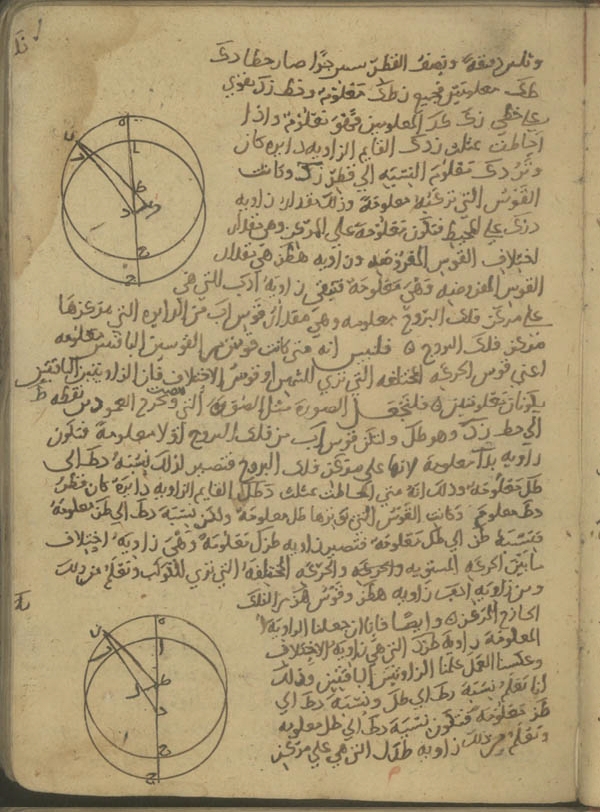 دقيقة ونصف القطر ستين جزءا صار خطا دك
طك معلومين فجميع زطك معلوم وخط زد يقوى
على خطي زك كد المعلومين فهو معلوم واذا
احاطت بمثلث زدك القايم الزاويه دايره كان
وتر دك معلوم النسبه الى قطر زد وكانت
القوس التي توتره معلومة وذلك مقدار زاويه
دزك على المحيط فتكون معلومة على المركز وهي مقدار
اختلاف القوس المفروضه وزاويه هطز هي مقدار
القوس المفروضه وهي معلومة فتبقى زاويه ادب التي هي
على مركز فلك البروج معلومه وهي مقدار قوس اب من الدايره التي مركزها
مركز فلك البروج ه فلنبين انه متى كانت قوس من القوسين الباقيتين معلومه
اعني قوس الحركه المختلفه التي تري للشمس او قوس الاختلاف فان الزاويتين الباقيتين
يكونان معلومتين ه فلنجعل الصورة مثل الصورة التي ونخرج العمود من نقطه ط
الى خط زد وهو طل ولتكن قوس اب من فلك البروج اولا معلومة فتكون
زاويه بدا معلومة لانها على مركز فلك البروج فتصير لذلك نسبة دط الى
طل معلومة وذلك انه متى احاطت بمثلث دطل القايم الزاويه دايرة كان قطر
دط معلوم وكانت القوس التي توترها طل معلومة ولكن نسبة دط الى طز معلومة
فنسبة طز الى طل معلومة فتصير زاويه طزل معلومة وهي زاويه اختلاف
ما بين الحركه المستويه والحركه المختلفه التي تري للكوكب وتعلم من ذلك
ومن زاويه ادب زاويه هطز وقوس هز من الفلك
الخارج المركز ه وايضا فانا ان جعلنا الزاويه
المعلومة زاويه طزد التي هي زاويه الاختلاف
وعكسنا العمل علمنا الزاويتين الباقيتين وذلك
انا نعلم نسبة زط الى طل ونسبة دط الى
طز معلومة فتكون نسبة دط الى طل معلومه
ونعلم من ذلك زاويه طدل التي هي على مركز